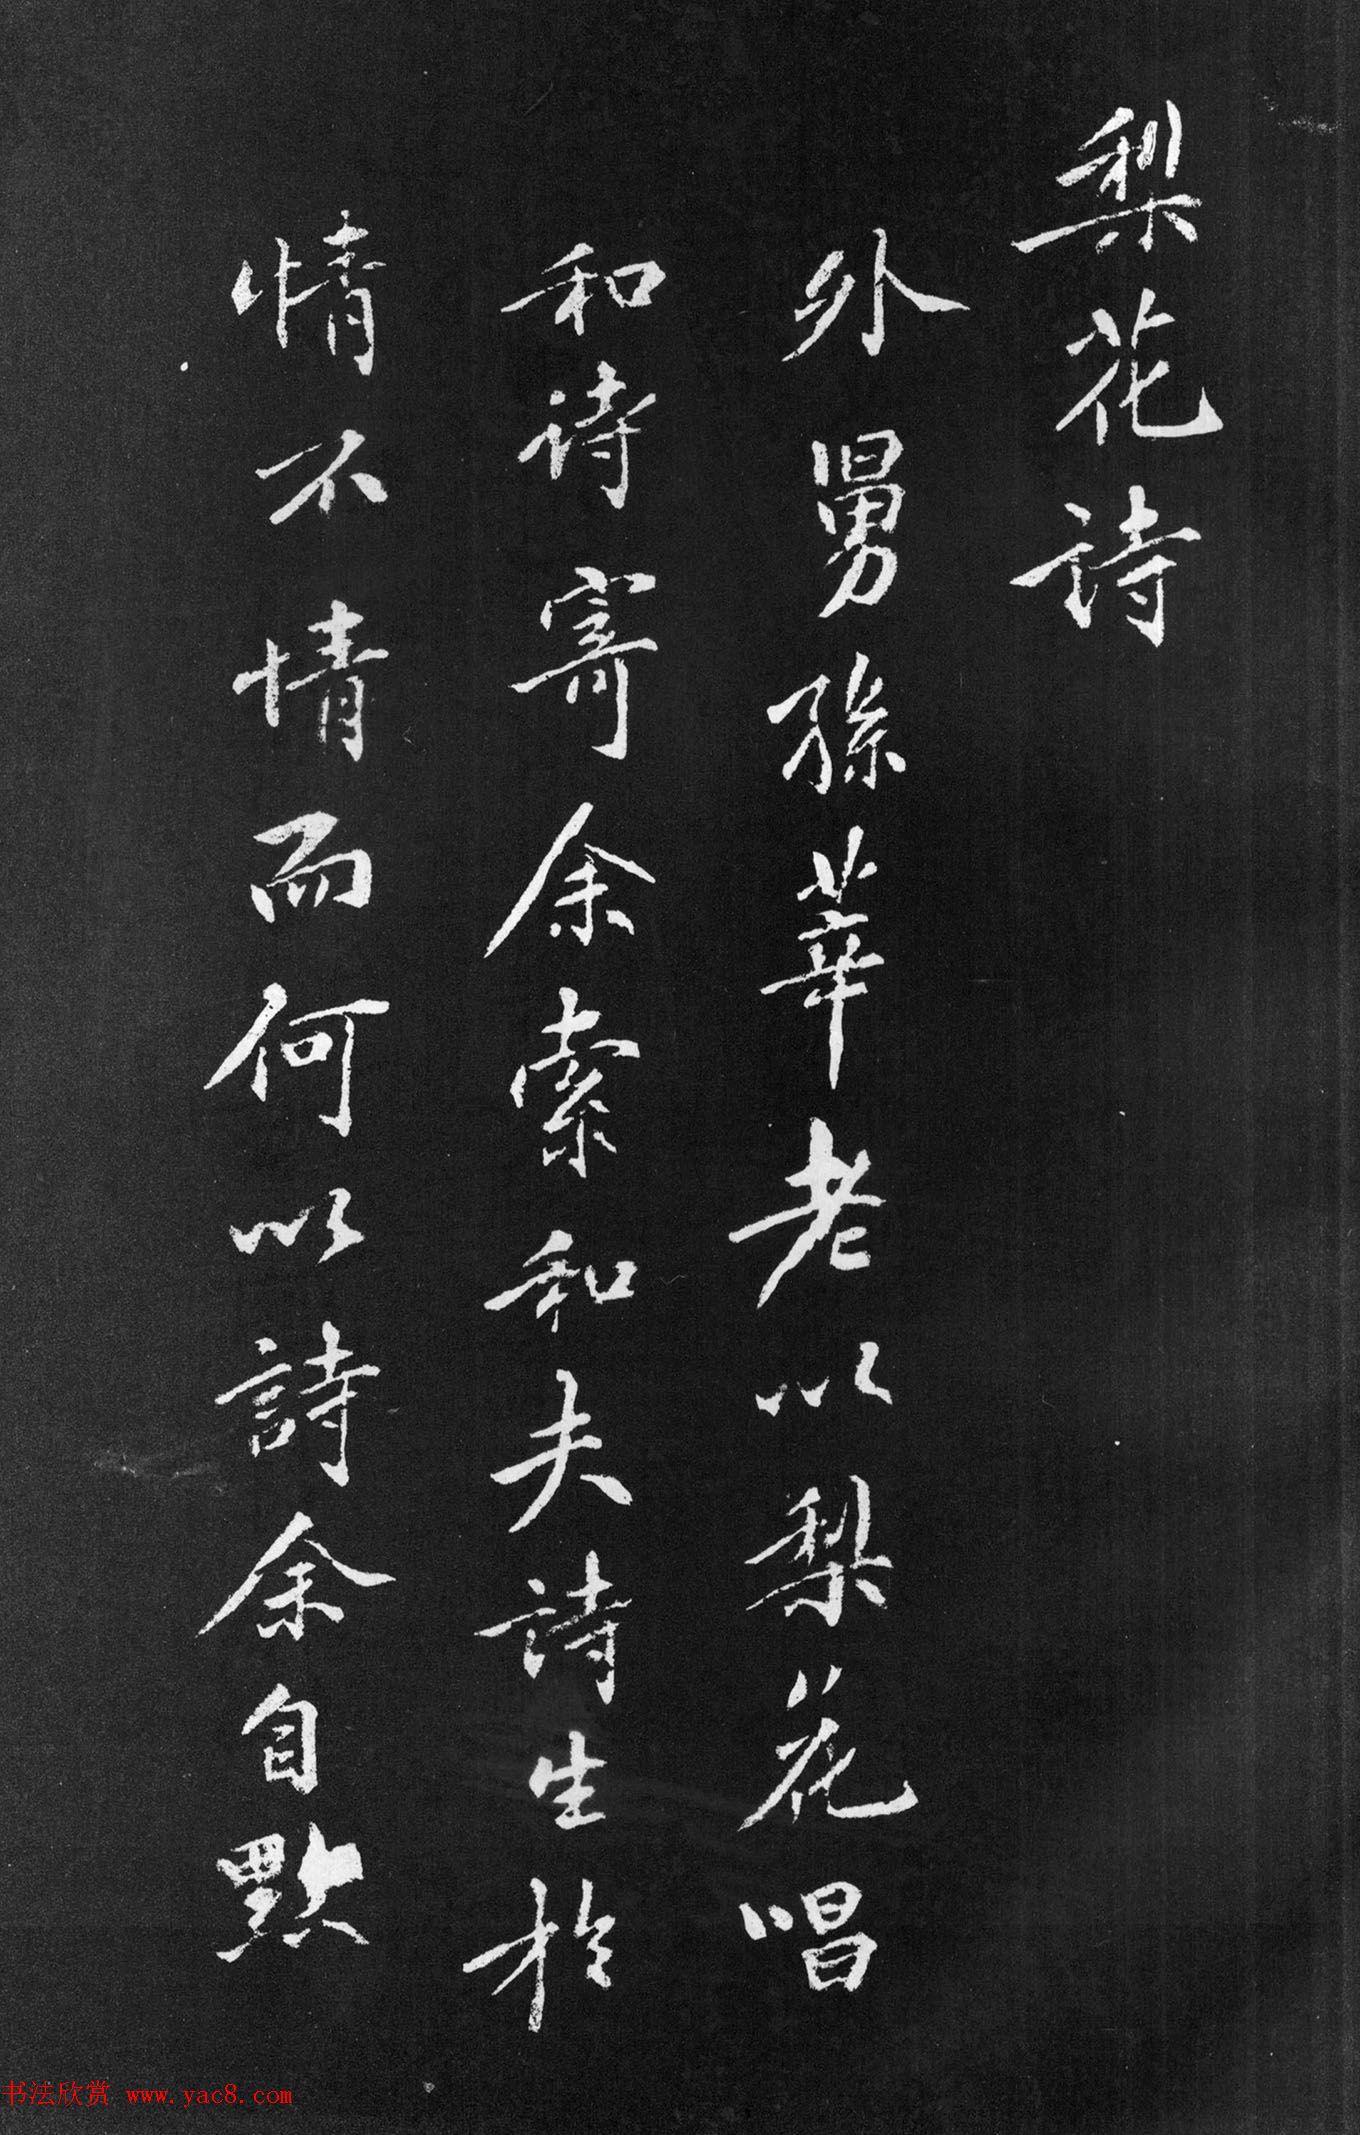 梨花詩
外舅孫莘老以梨花唱
和诗寄余索和夫詩生於
情不情而何以詩余自黙
书法欣赏 www.yac8.com